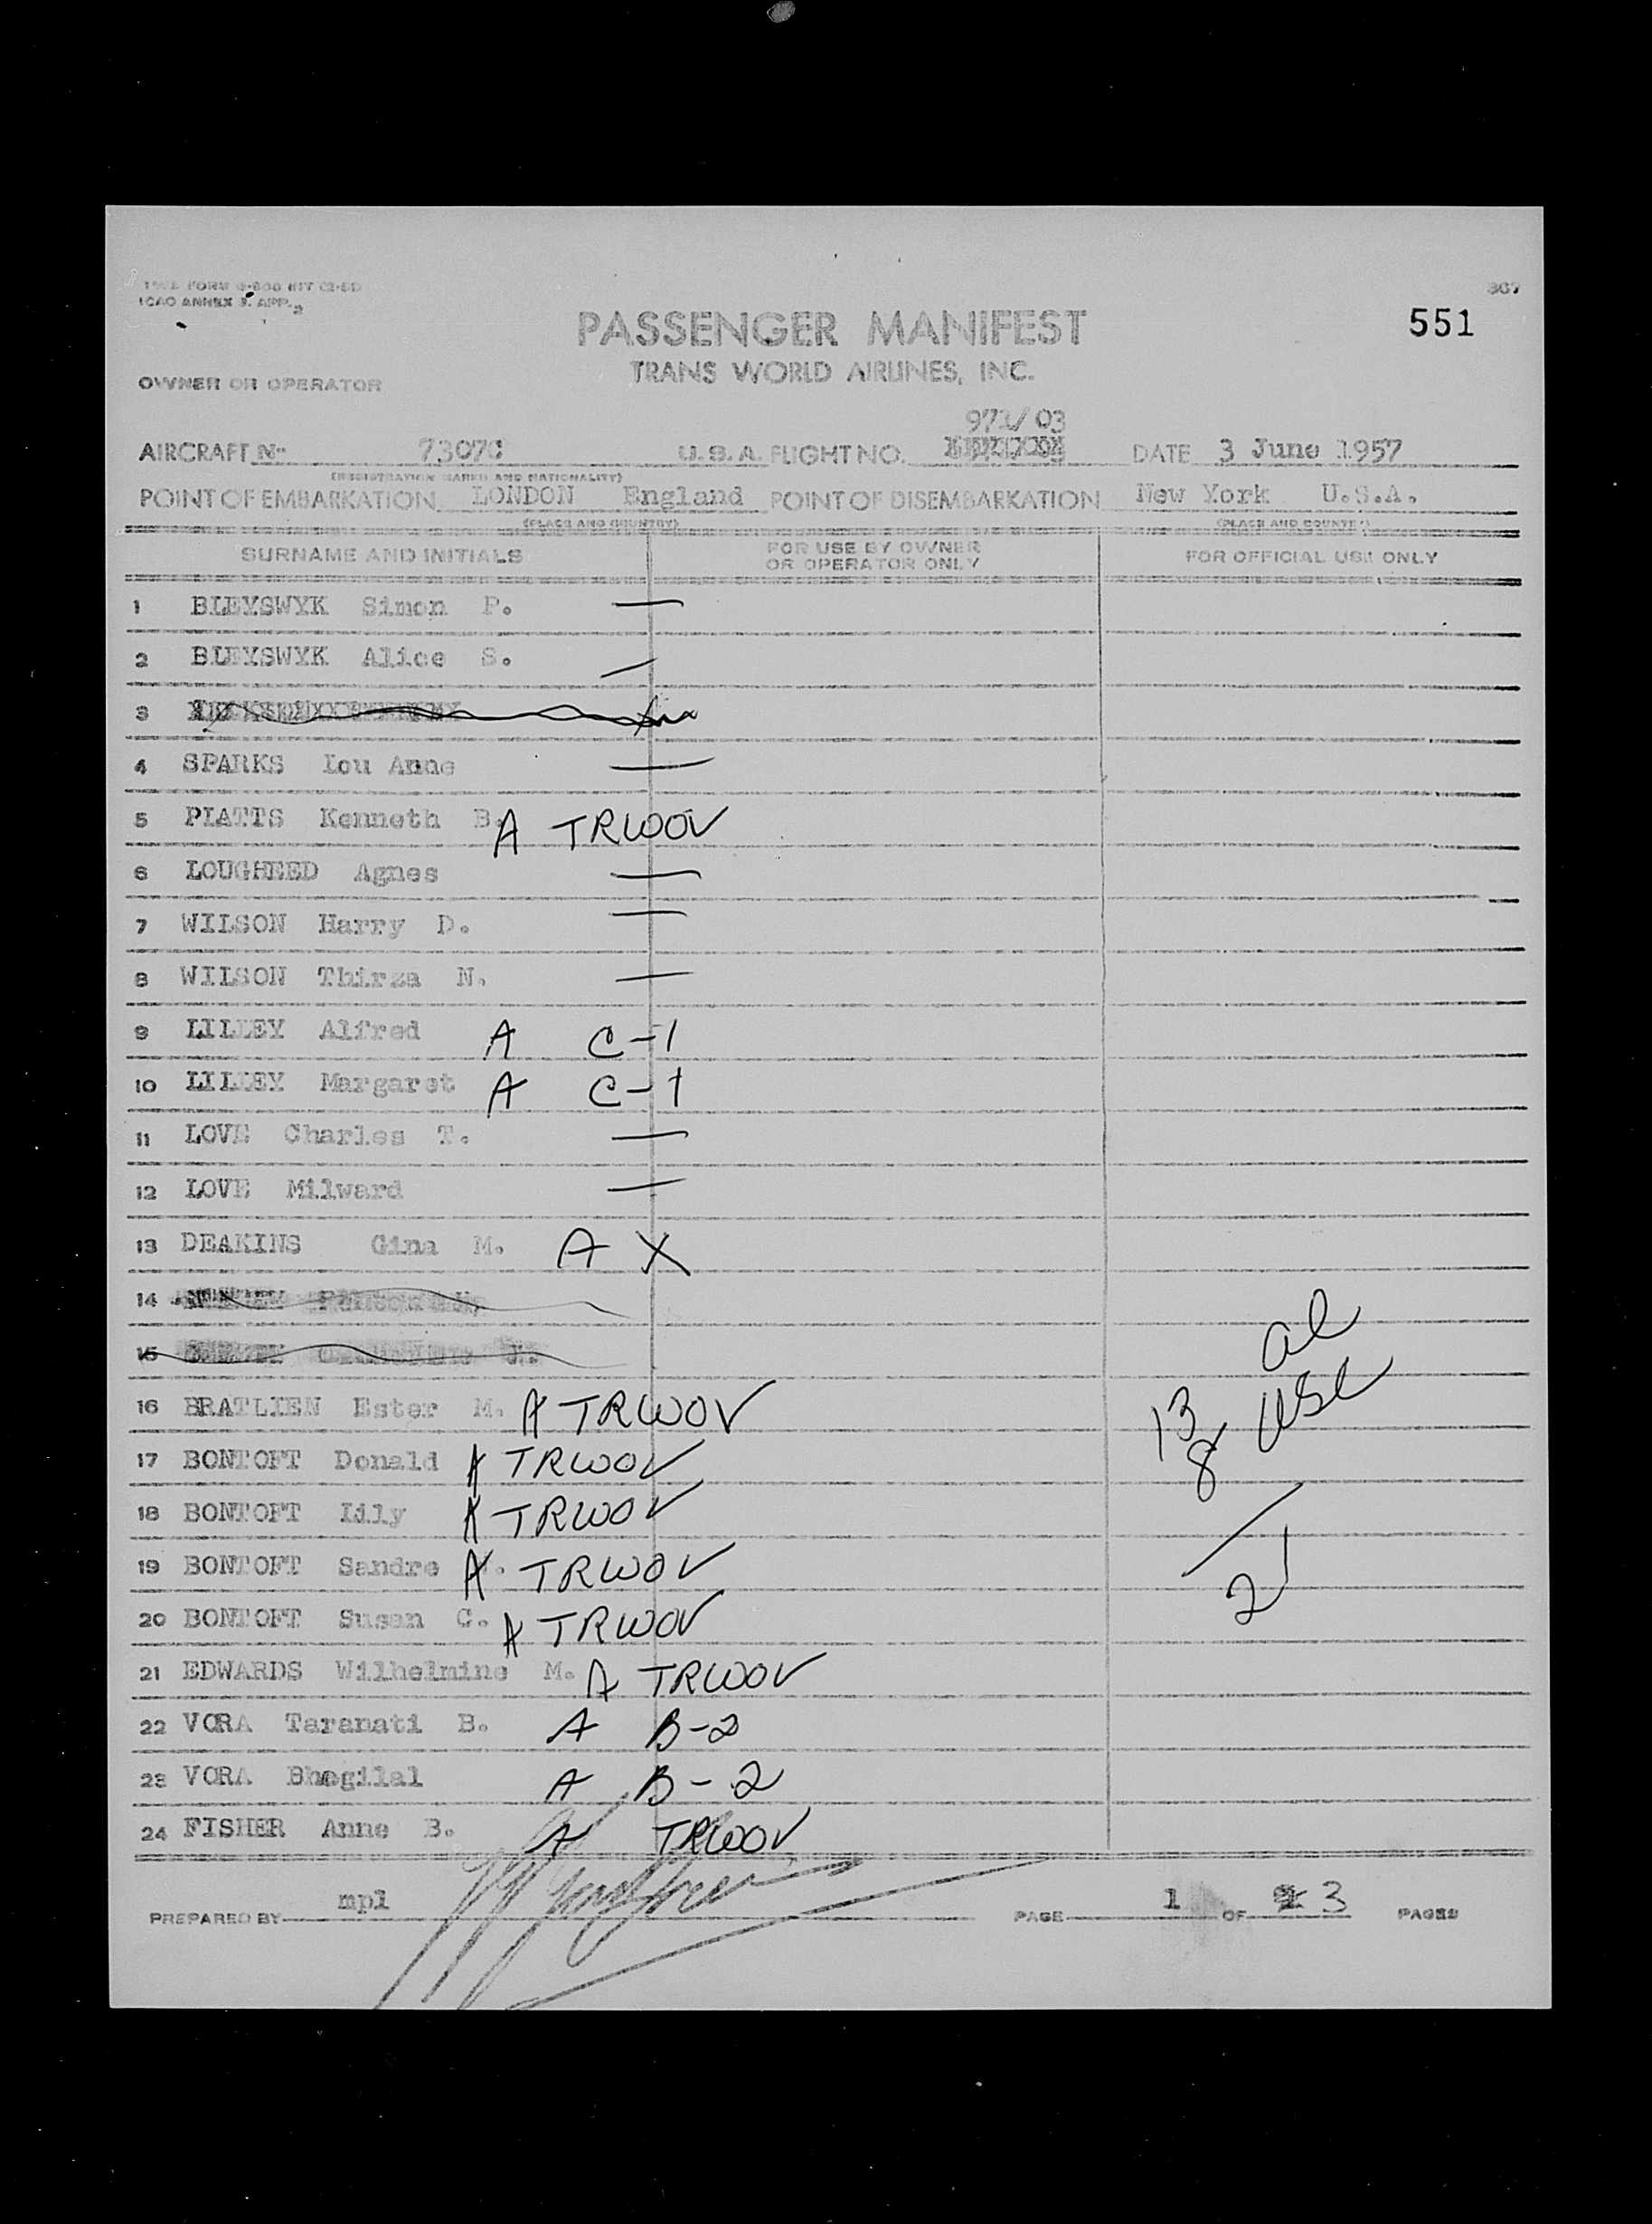 ICAO ANNEX 9. APP. 2
307
551
PASSENGER MANIFEST
TRANS WORLD AIRLINES, INC.
OWNER OR OPERATOR
971/03
AIRCRAFT No. 7307C U.S.A. FLIGHT NO. DATE 3 June 1957
(REGISTRATION MARKS AND NATIONALITY)
POINT OF EMBARKATION LONDON England POINT OF DISEMBARKATION New York U.S.A.
(PLACE AND COUNTRY) (PLACE AND COUNTRY)
SURNAME AND INITIALS FOR USE BY OWNER OR OPERATOR ONLY FOR OFFICIAL USE ONLY
1 BLEYSWYK Simon P. —
2 BLEYSWYK Alice S. —
3
4 SPARKS Lou Anne —
5 PLATTS Kenneth B. A TRWOV
6 LOUGHEED Agnes —
7 WILSON Harry D. —
8 WILSON Thirza N. —
9 LILLEY Alfred A C-1
10 LILLEY Margaret A C-1
11 LOVE Charles T. —
12 LOVE Milward —
13 DEAKINS Gina M. A X
14
15
16 BRATLIEN Ester M. A TRWOV
17 BONTOFT Donald A TRWOV
18 BONTOFT Lily A TRWOV
19 BONTOFT Sandre A TRWOV
20 BONTOFT Susan C. A TRWOV
21 EDWARDS Wilhelmine M. A TRWOV
22 VORA Taranati B. A B-2
23 VORA Bhogilal A B-2
24 FISHER Anne B. A TRWOV
13 al
8 USC
21
PREPARED BY mpl PAGE 1 OF 3 PAGES